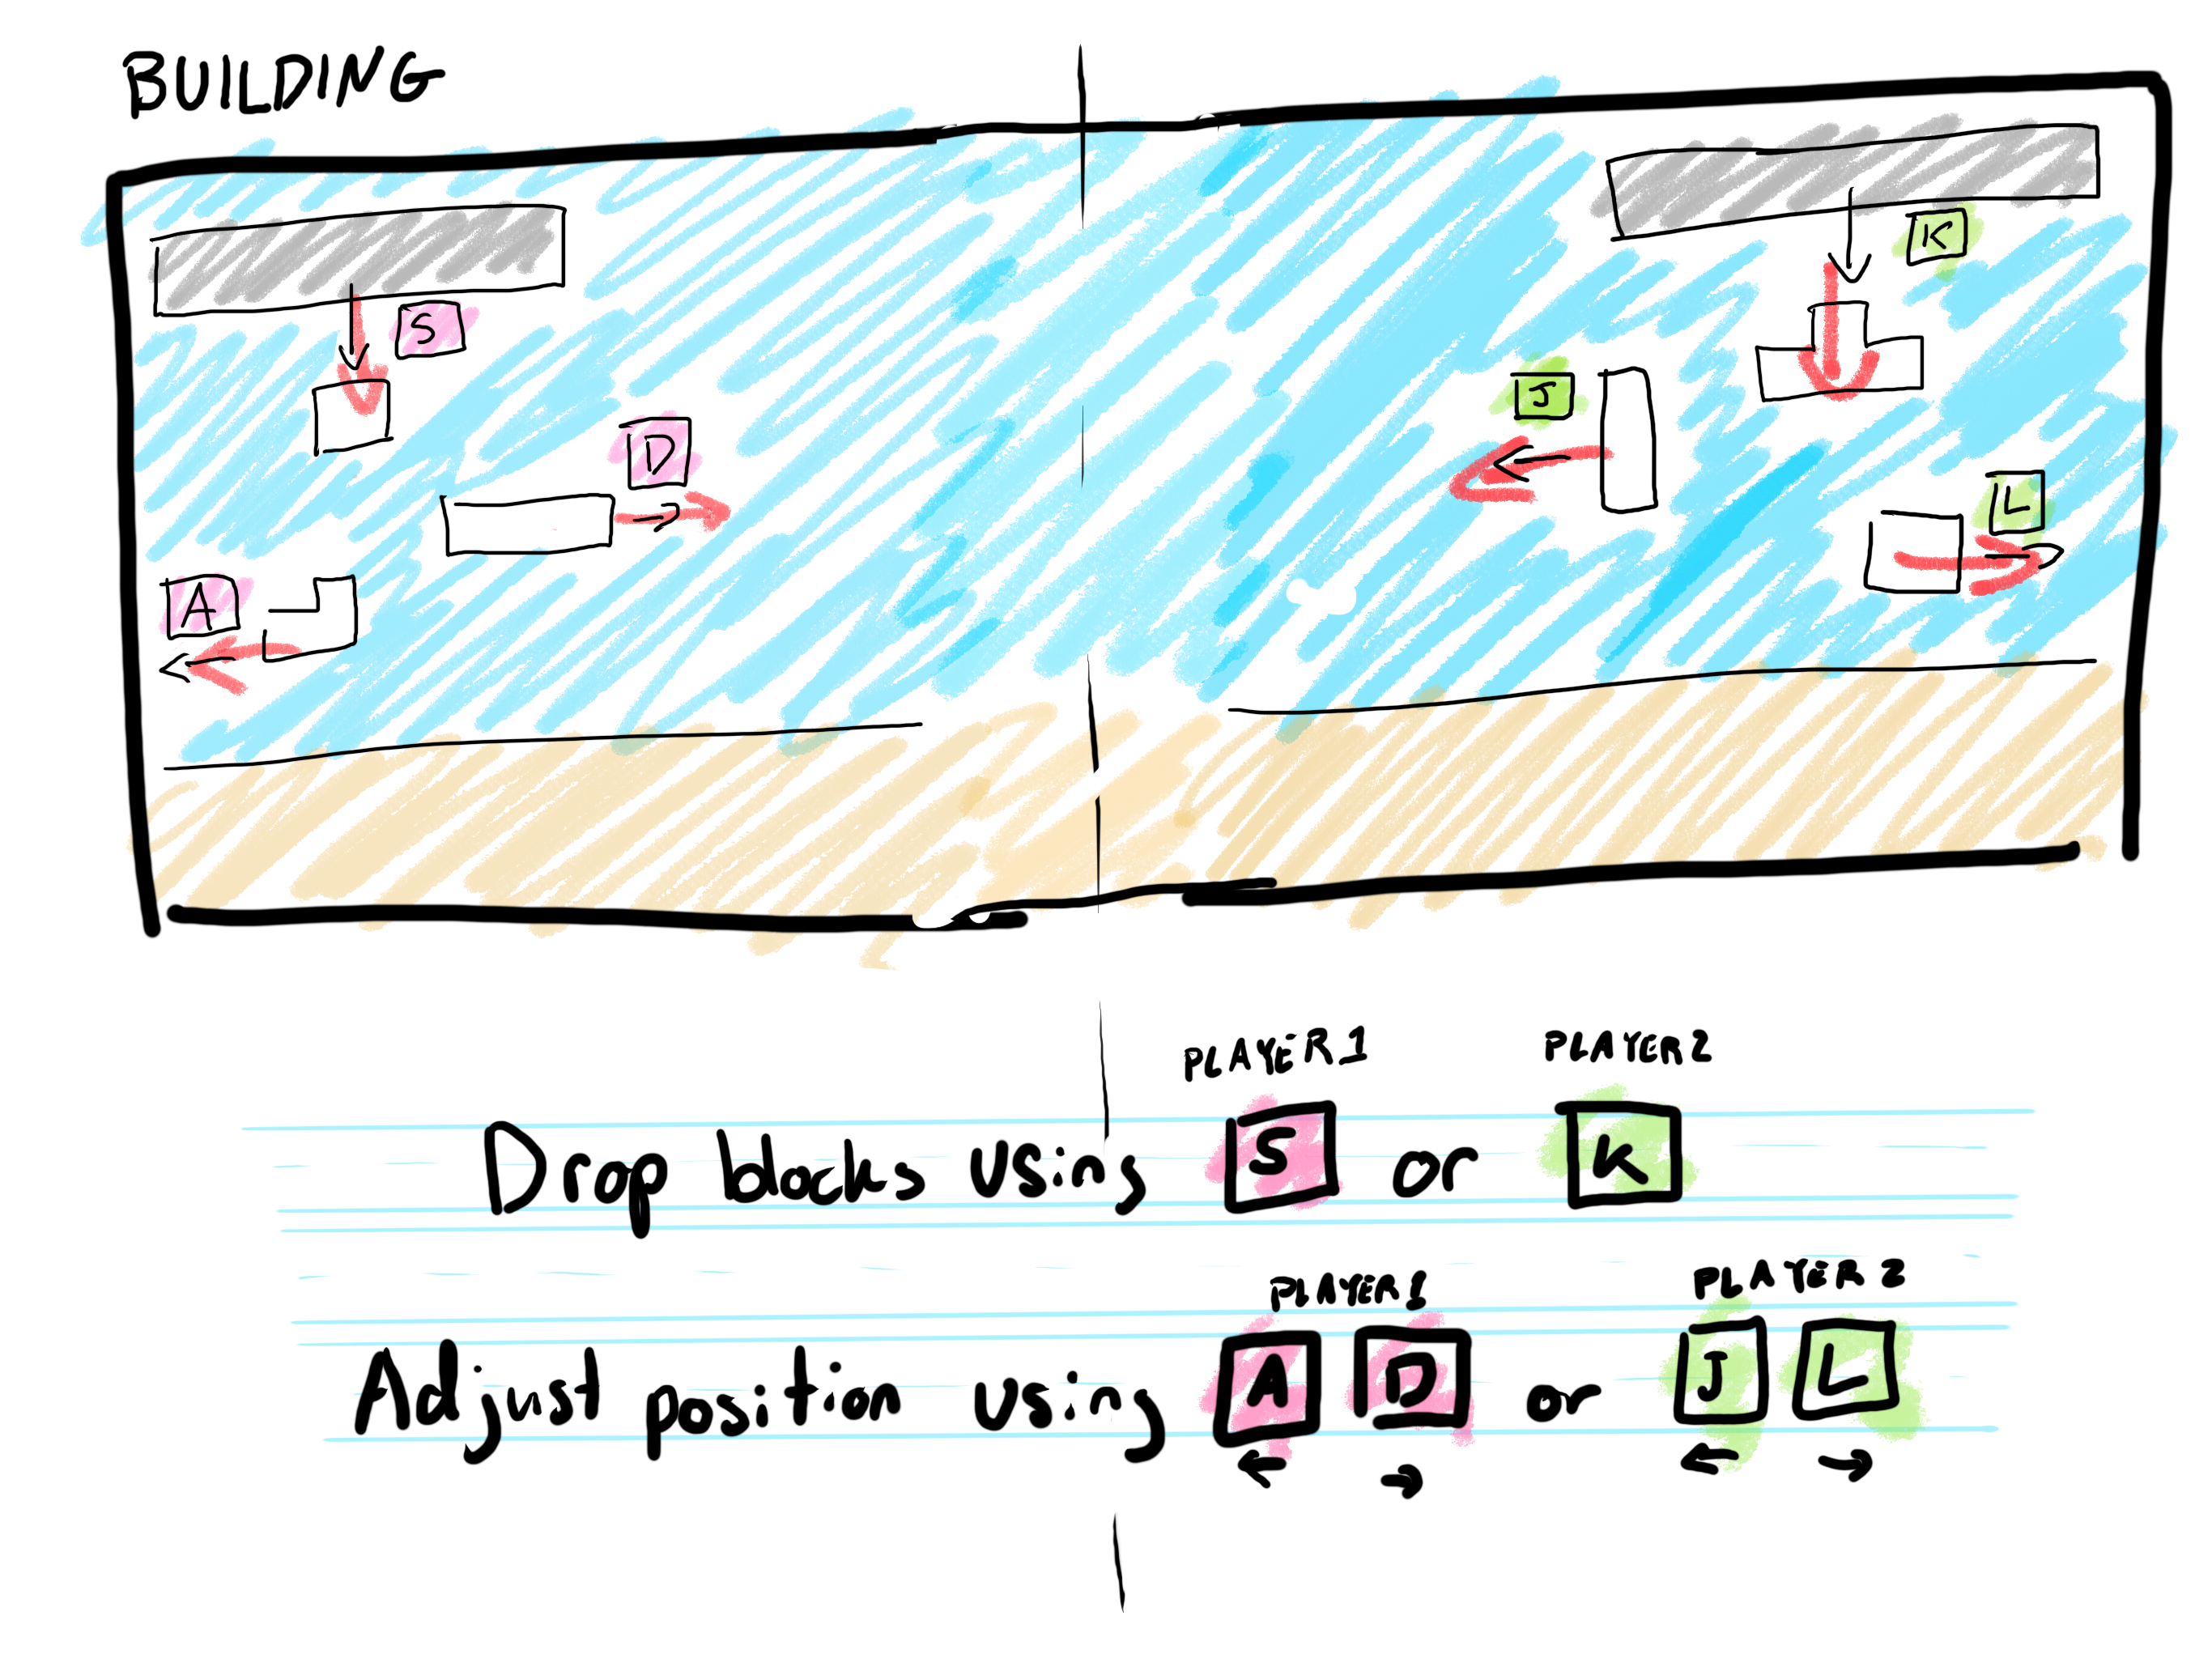 BUILDING
K
S
J
D
L
A
PLAYER 1 PLAYER 2
Drop blocks using S or K
PLAYER 1 PLAYER 2
Adjust position using A D or J L
← → ← →